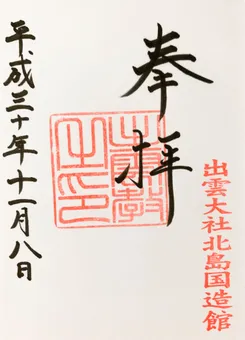 奉拝
出雲教之印
出雲大社北島国造館
平成三十年十一月八日